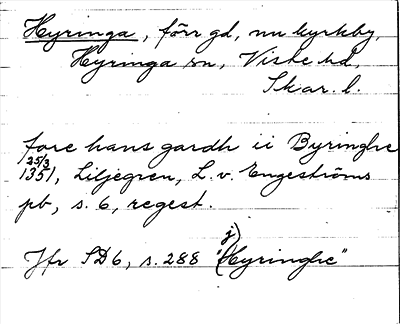 Hyringa, förr gd, nu kyrkby,
Hyringa sn, Viste hd,
Skar. l.
fore hans gardh ii Byringhe
25/3 1351, Liljegren, L. v. Engeströms
pb, s. 6, regest.
Jfr SD 6, s. 288 "(j) Hyringhe"